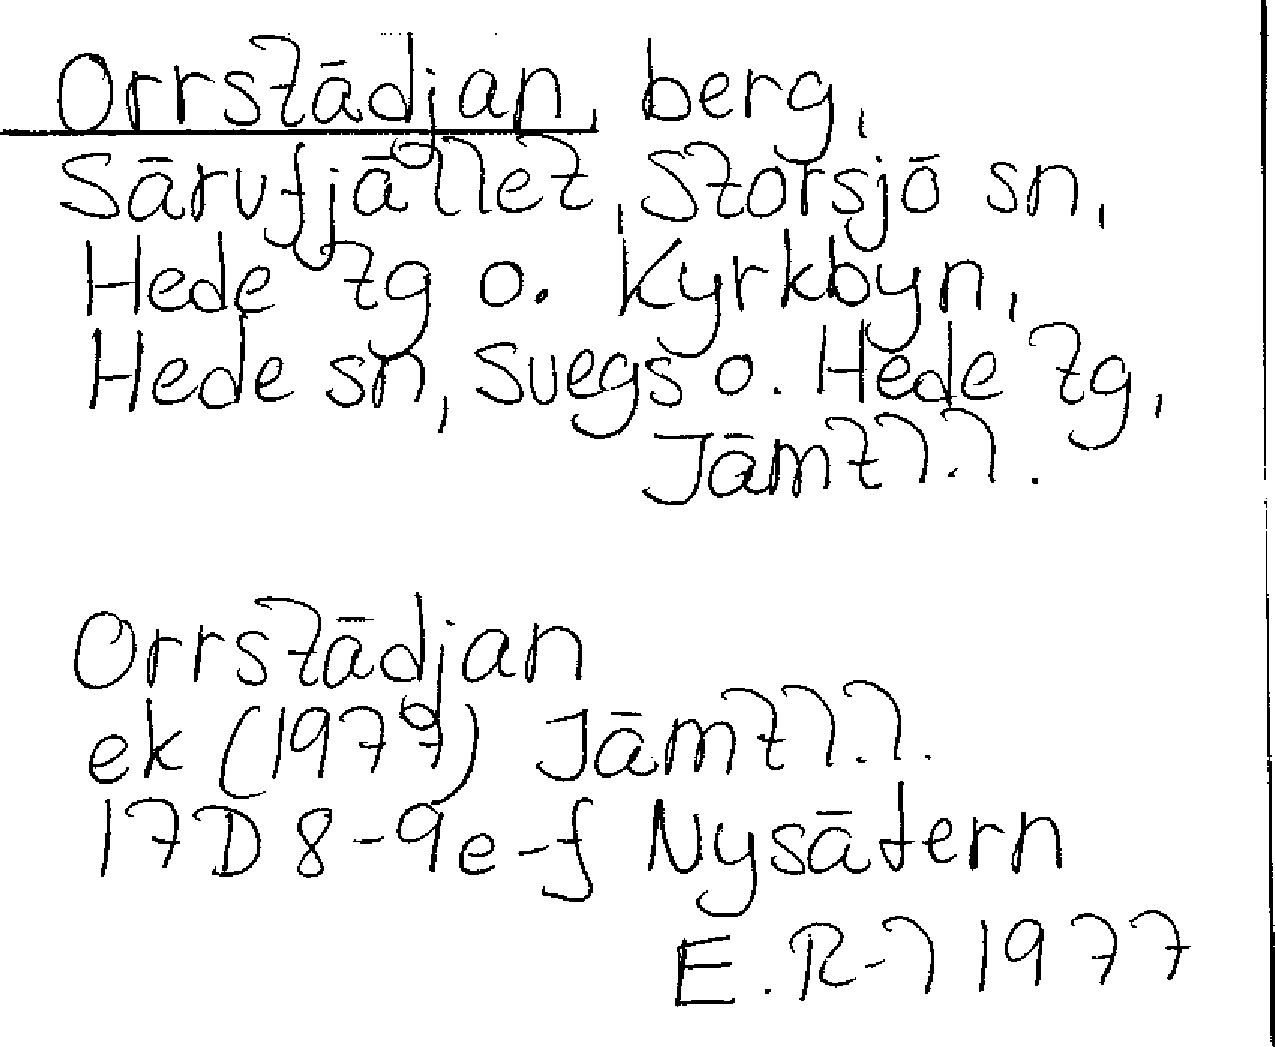 Orrstädjan, berg,
Särvfjället, Storsjö sn,
Hede tg o. Kyrkbyn,
Hede sn, Svegs o. Hede tg,
Jämtl.l.
Orrstädjan
ek (1977) Jämtl.l.
17D 8-9e-f Nysätern
E. R-l 1977